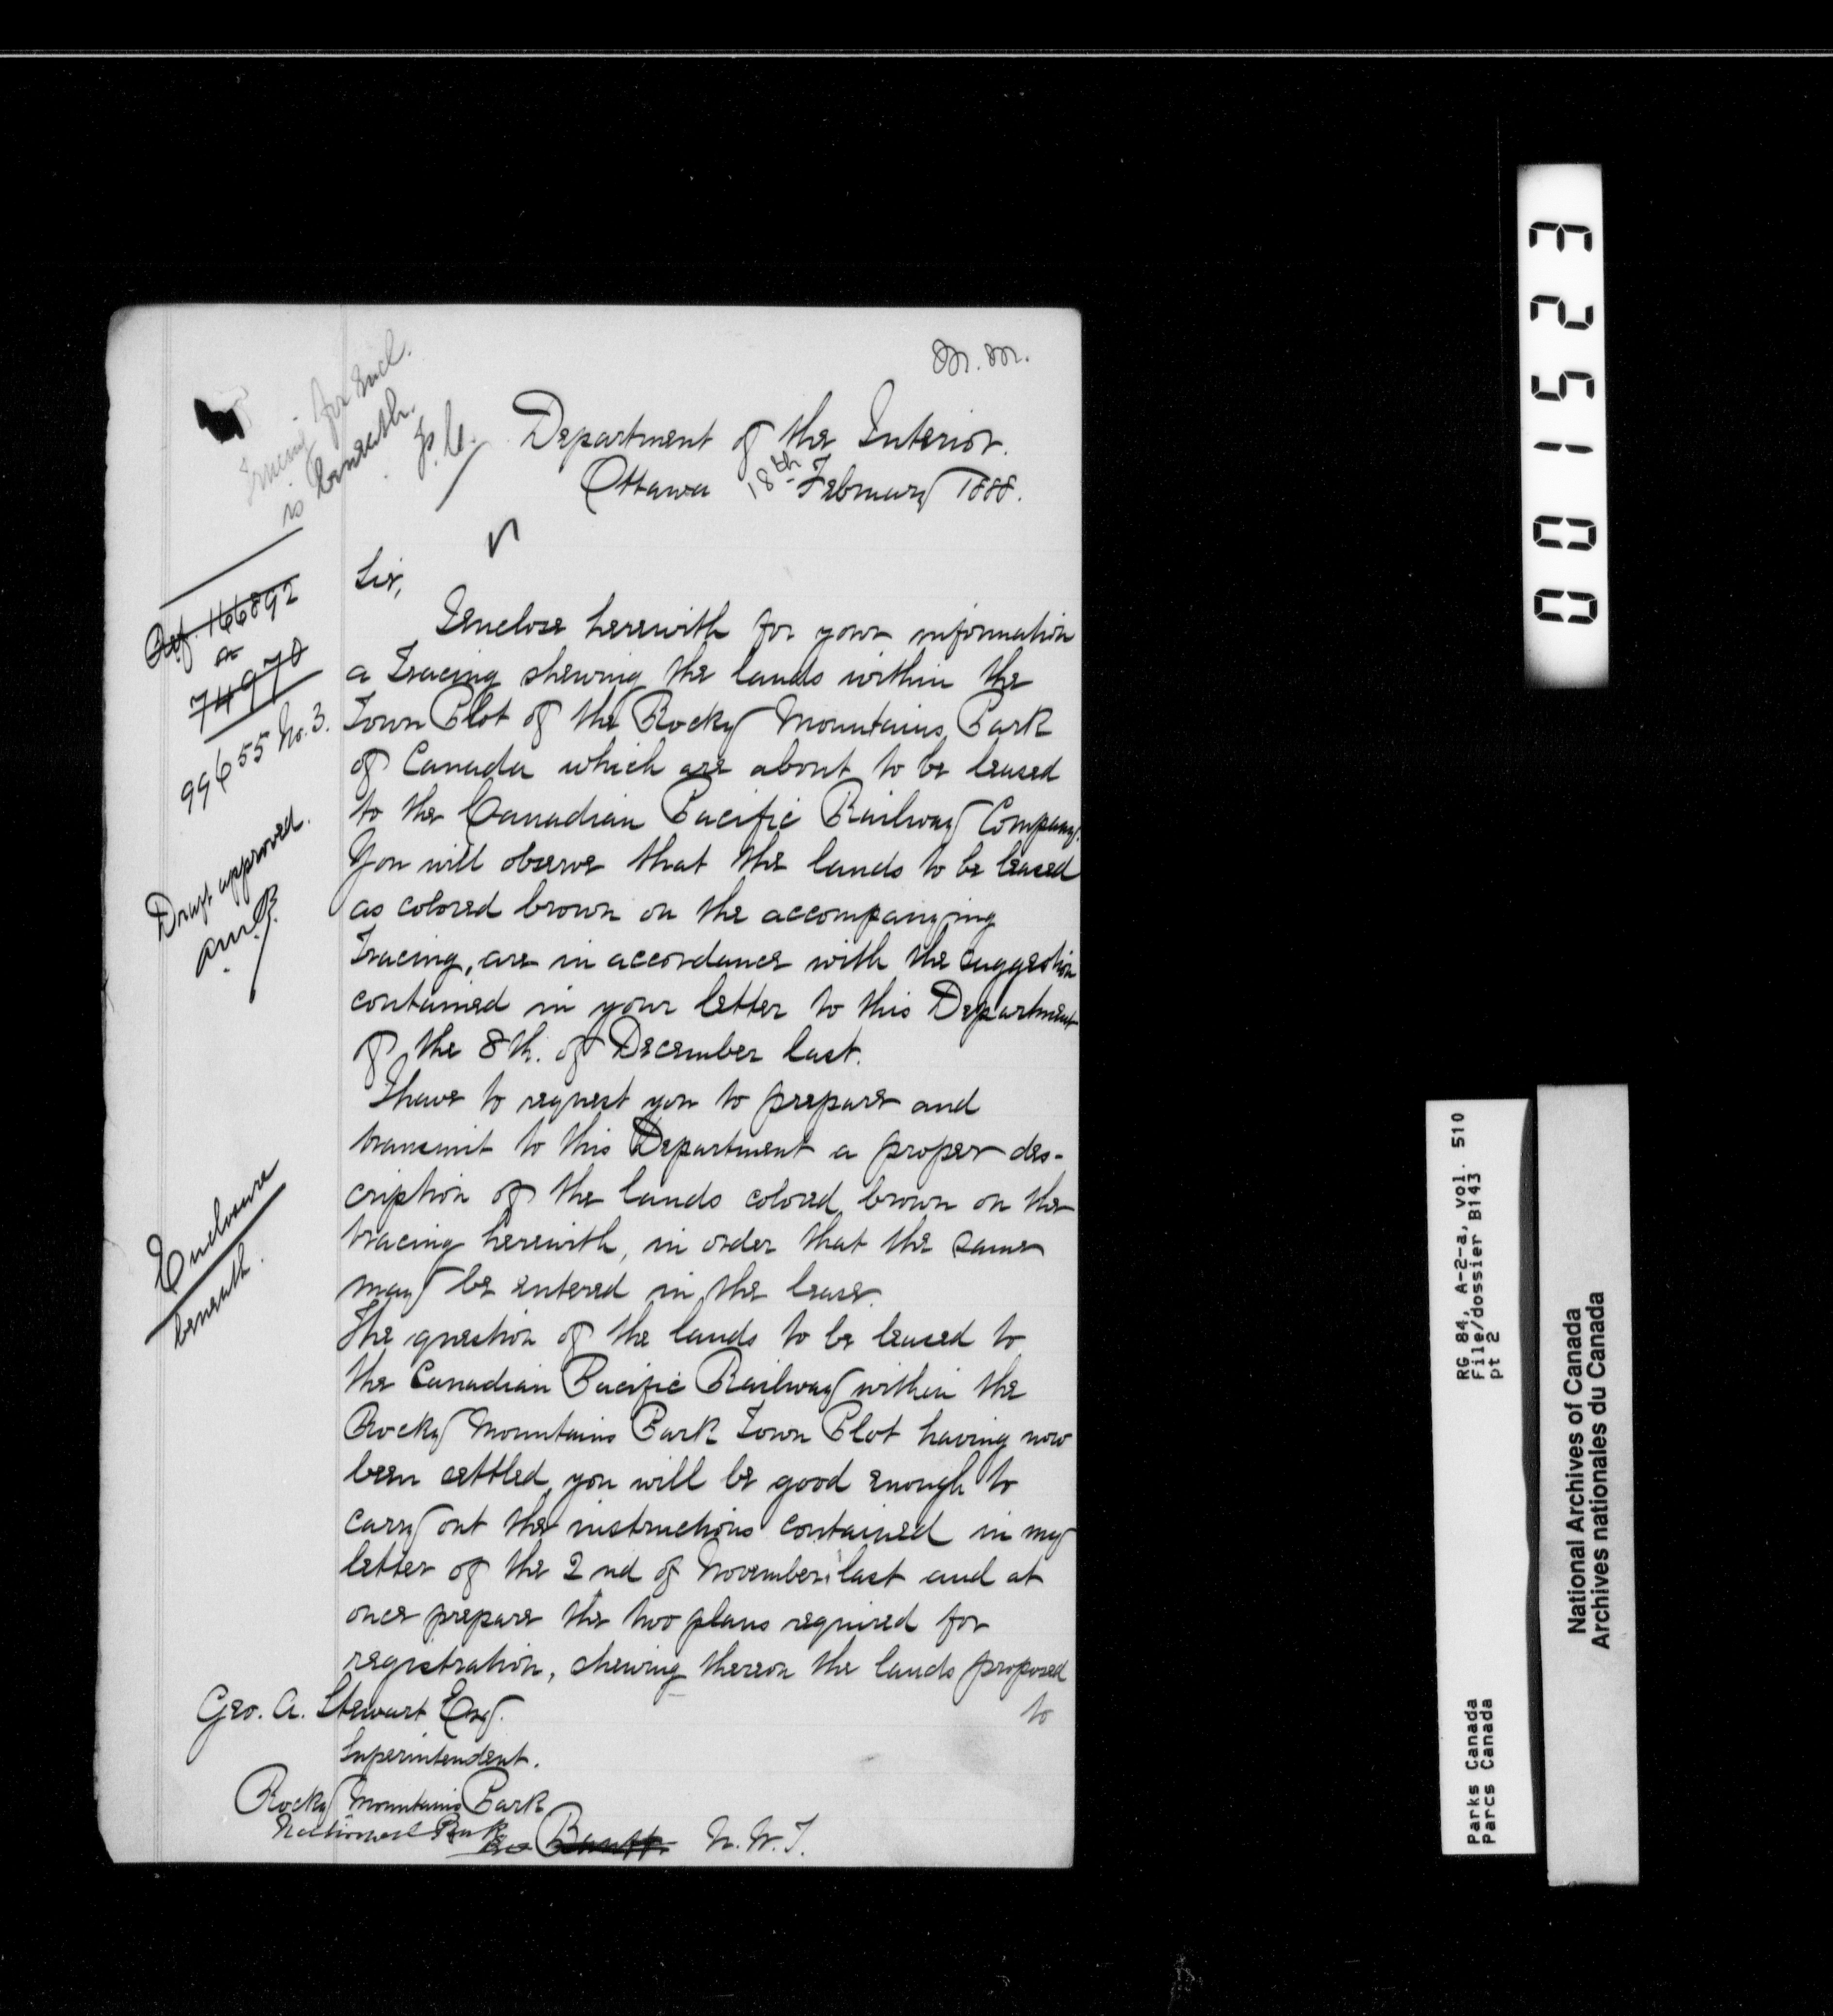 M.M.
Tracing for Encl.
is beneath.
Department of the Interior.
Ottawa 18th February 1888.
Sir,
I enclose herewith for your information
a Tracing shewing the lands within the
Town Plot of the Rocky Mountains Park
of Canada which are about to be leased
to the Canadian Pacific Railway Company.
You will observe that the lands to be leased
as colored brown on the accompanying
Tracing, are in accordance with the suggestion
contained in your letter to this Department
of the 8th. of December last.
I have to request you to prepare and
transmit to this Department a proper des-
cription of the lands colored brown on the
tracing herewith, in order that the same
may be entered in the lease.
The question of the lands to be leased to
the Canadian Pacific Railway within the
Rocky Mountains Park Town Plot having now
been settled, you will be good enough to
carry out the instructions contained in my
letter of the 2nd of November last and at
once prepare the two plans required for
registration, shewing thereon the lands proposed
to
Geo. A. Stewart Esq.
Superintendent.
Rocky Mountains Park
National Park
Banff N.W.T.
Ref. 166892
on
74970
99655 No. 3.
Draft approved.
A.M.B.
Enclosure
beneath.
0015123
RG 84, A-2-a, vol. 510
File/dossier B143
pt 2
Parks Canada
Parcs Canada
National Archives of Canada
Archives nationales du Canada